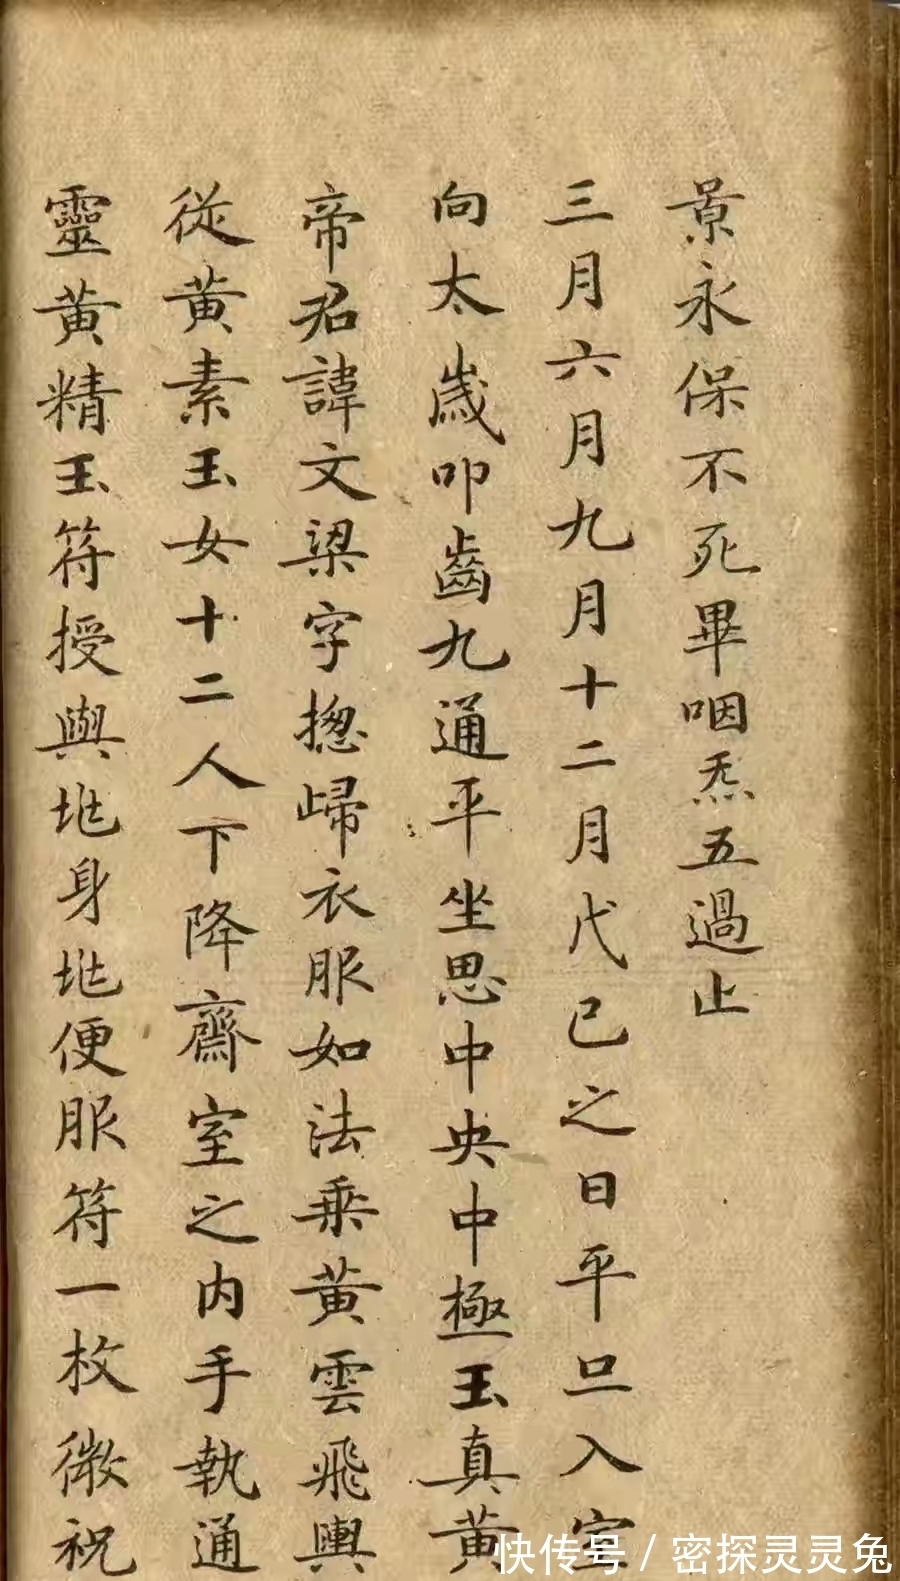 景永保不死畢咽炁五過止
三月六月九月十二月戊己之日平旦入室
向太歲叩齒九通平坐思中央中極玉真黃
帝君諱文梁字揔歸衣服如法乘黃雲飛輿
從黃素玉女十二人下降齋室之內手執通
靈黃精玉符授與地身地便服符一枚微祝
快传号 / 密探灵灵兔